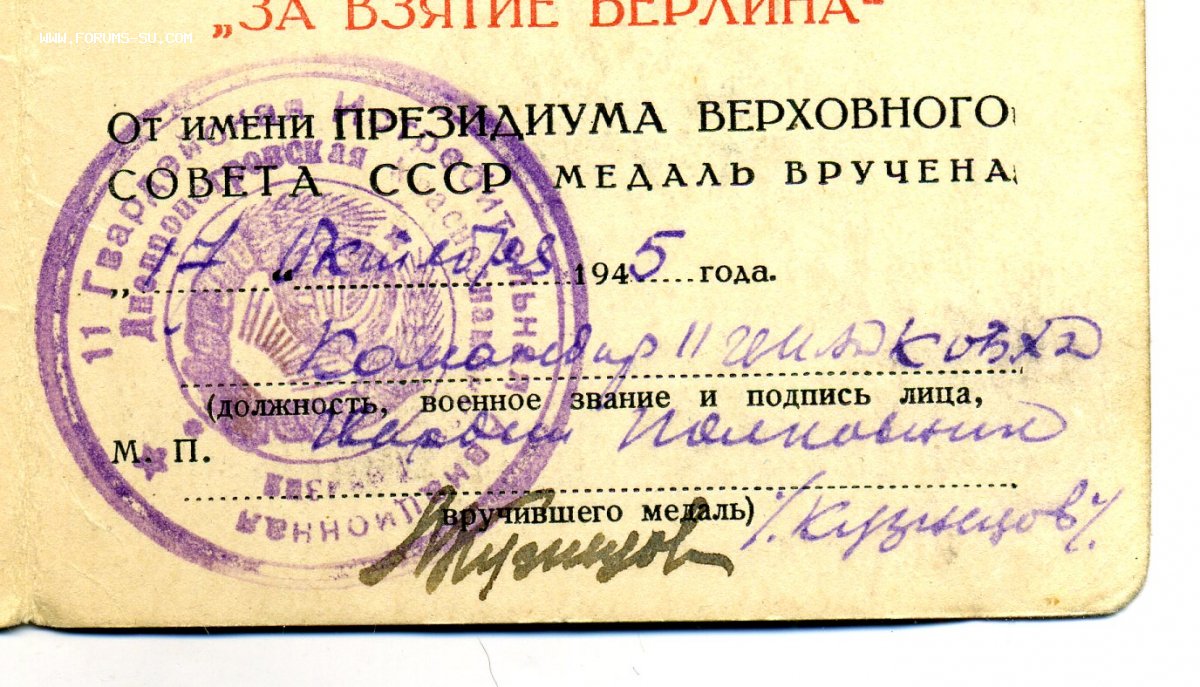 „ЗА ВЗЯТИЕ БЕРЛИНА“
WWW.FORUMS-SU.COM
ОТ ИМЕНИ ПРЕЗИДИУМА ВЕРХОВНОГО
СОВЕТА СССР МЕДАЛЬ ВРУЧЕНА
„17“ Октября 1945 года.
Командир 11
(должность, военное звание и подпись лица,
Гвардии Полковник
М. П.
вручившего медаль)
Кузнецов /Кузнецов/.
11 Гвардейская Истребительная Авиационная
Днепропетровская Дивизия